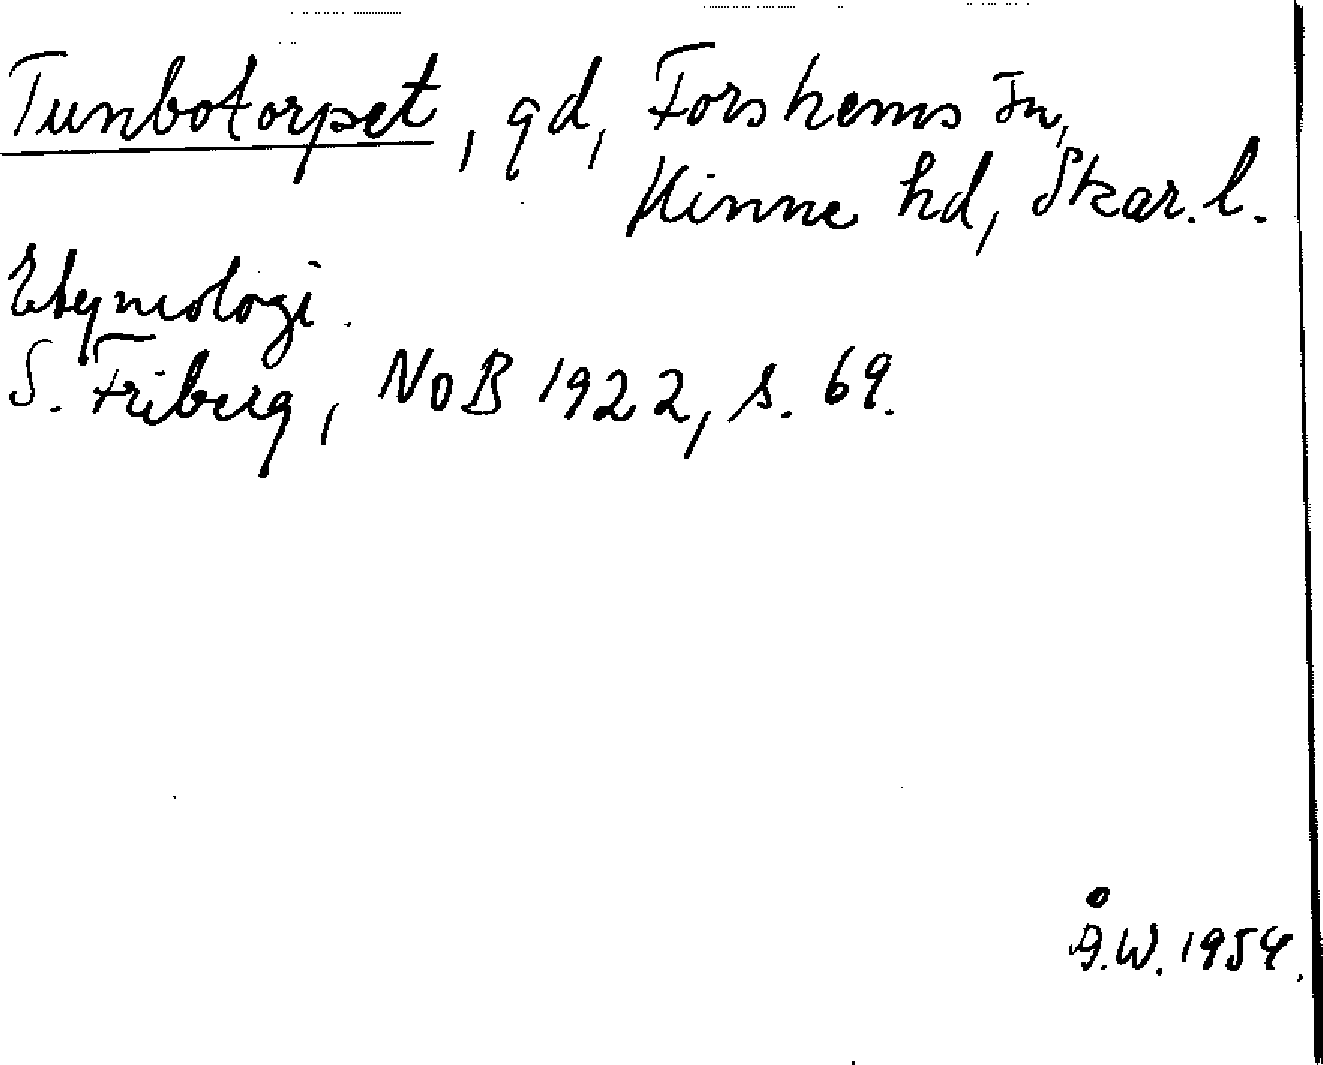 Tunbotorpet, gd, Forshems sn,
Kinne hd, Skar. l.
Etymologi.
S. Friberg, NoB 1922, s. 69.
Å.W. 1954.